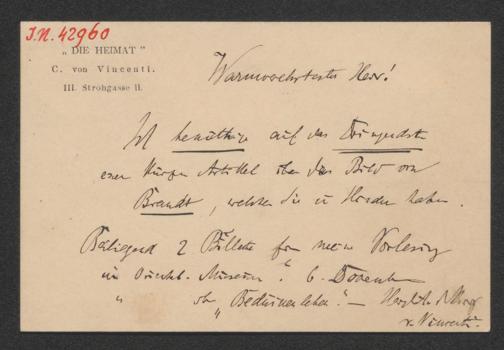 J.N. 42960
„ DIE HEIMAT "
C. von Vincenti.
III. Strohgasse 11.
Warmverehrtester Herr!
Ich benöthige auf das Dringendste
einen kurzen Artikel über das Bild von
Brandt, welchen Sie in Händen haben.
Beiliegend 2 Billete für meine Vorlesung
im Oriental. Museum: 6. Dezember
„ „Beduinenleben". — Herzlich
v. Vincenti